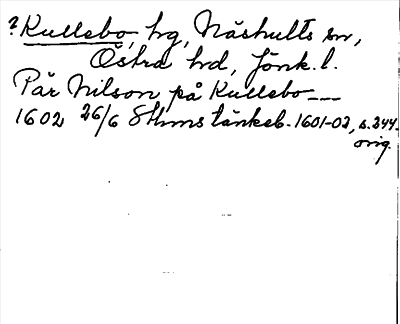 ? Kullebo, hg, Näshults sn,
Östra hd, Jönk. l.
Pär Nilson på Kullebo ---
1602 26/6 Sthms tänkeb. 1601-02, s. 244.
orig.